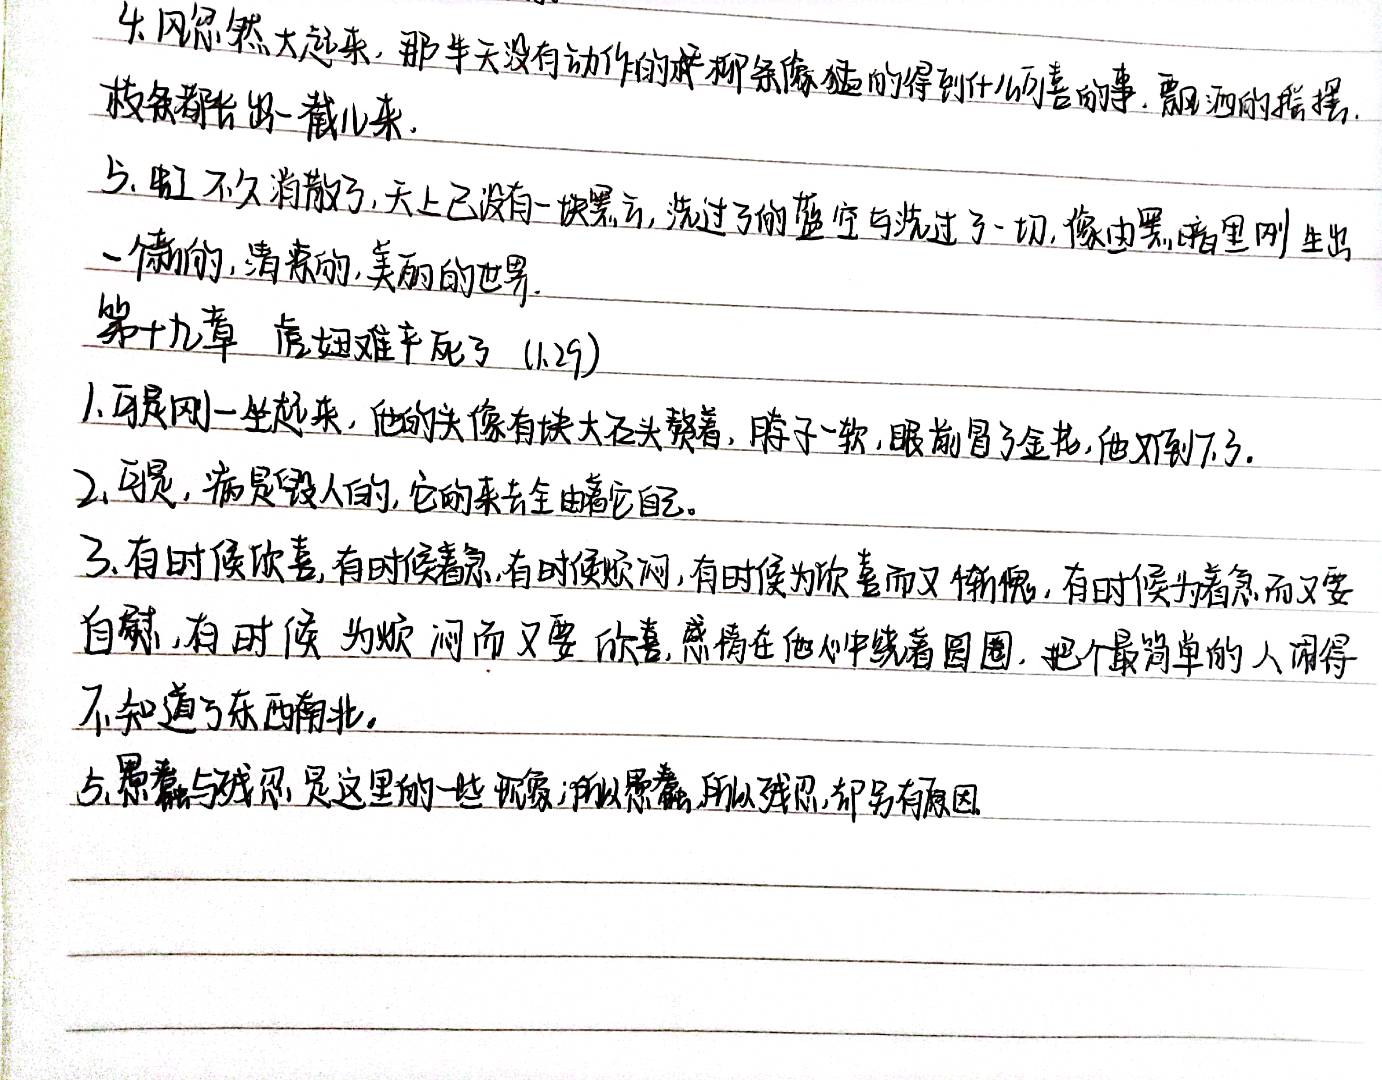 4. 风忽然大起来，那半天没有动作的柳条像猛的得到什么可喜的事，飘洒的摇摆，
枝条都长出一截儿来。
5. 虹不久消散了，天上已没有一块黑云，洗过了的蓝空与洗过了一切，像由黑暗里刚生出
一个新的，清凉的，美丽的世界。
第十九章 虎妞难产死了 (1.29)
1. 可是刚一坐起来，他的头像有块大石头赘着，脖子一软，眼前冒了金花，他又倒下了。
2. 可是，病是毁人的，它的来去全由着它自己。
3. 有时候欣喜，有时候着急，有时候烦闷，有时候为欣喜而又惭愧，有时候为着急而又要
自慰，有时候为烦闷而又要欣喜，感情在他心中绕着圆圈，把个最简单的人闹得
不知道了东西南北。
5. 愚蠢与残忍是这里的一些现象；所以愚蠢，所以残忍，却另有原因。